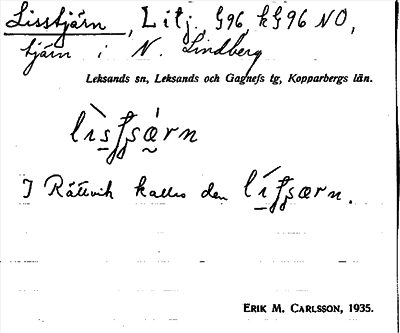 Lisstjärn, Litj. G96, kG96 NO,
tjärn i N. Lindberg
Leksands sn, Leksands och Gagnefs tg, Kopparbergs län.
I Rättvik kallas den
ERIK M. CARLSSON, 1935.